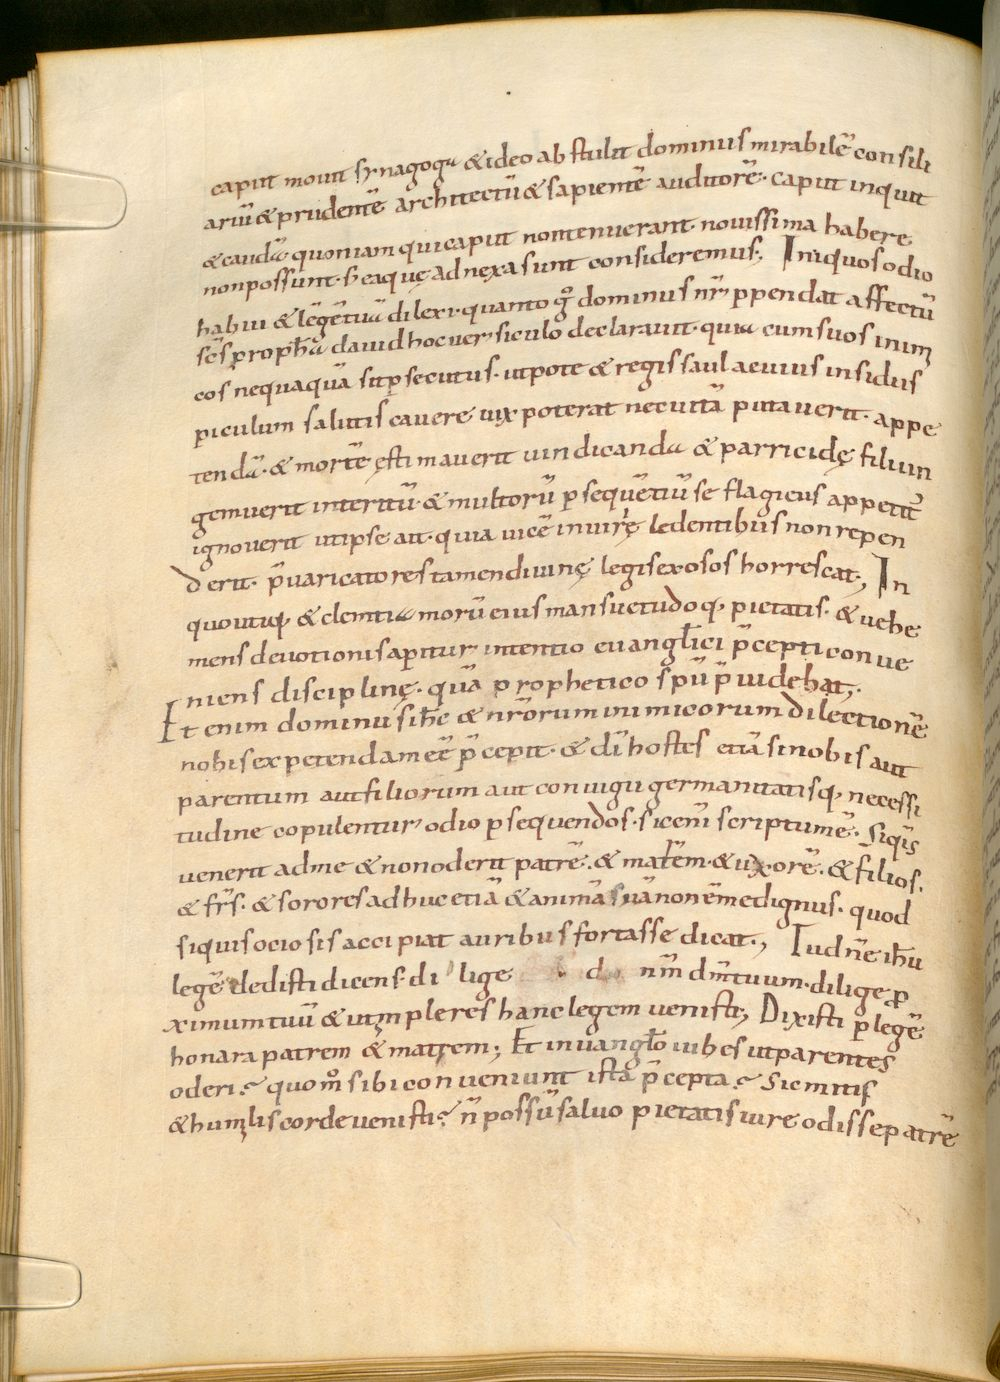 caput mouit synagoga & ideo abstulit dominus mirabilē consili
ariū & prudentē architectū & sapientē auditorē · caput inquit
& caudā quoniam qui caput non tenuerant · nouissima habere
non possunt · s̄ ea quę adnexa sunt consideremus ; Iniquos odio
habui & legē tuā dilexi · quanto gͦ dominus nr̄ ppendat affectū
sc̄s proph̄a dauid hoc uersiculo declarauit · quia cum suos inim
cos nequaquā sit psecutus · utpote & regis saul aeuius insidiis
piculum salutis cauere uix poterat nec uitā putauerit · appe
tendā · & mortē ęstimauerit uindicandā & parricidę filii in
gemuerit interitū · & multorū psequētiū se flagiciis appetit̄
ignouerit ut ipse ait · quia uicē in uirę ledentibus non repen
derit · p̄uaricatores tamen diuinę legis exosos horrescat ; In
quo utiq; & clemtia morū eius mansuetudoq; pietatis · & uehe
mens deuotionis apitur intentio euangl̄ici p̄cepti conue
niens disciplinę · quā prophetico sp̄u p̄uidebat ;
Et enim dominus ih̄c & nr̄orum inimicorum dilectionē
nobis expetendam eē p̄cepit · & dī hostes etiā si nobis aut
parentum aut filiorum aut coniugii germanitatisq; necessi
tudine copulentur odio psequendos · sic enī scriptum ē · Siq̄s
uenerit ad me & non oderit patrē · & mat̄em · & uxorē · & filios ·
& fr̄s · & sorores adhuc etiā & animā suā non ē me dignus · quod
si quis ociosis accipiat auribus fortasse dicat ; Tu dn̄e ih̄u
legē dedisti dicens · dilige dm̄ tuum · dilige pro
ximum tuū & ut impleres hanc legem uenisti ; Dixisti p legē
honara patrem & matrem ; Et in uangl̄o iubes ut parentes
oderi? quom̊ sibi conueniunt ista p̄cepta? Sic mitis
& humlis corde uenisti? n̄ possū saluo pietatis iure odisse patrē